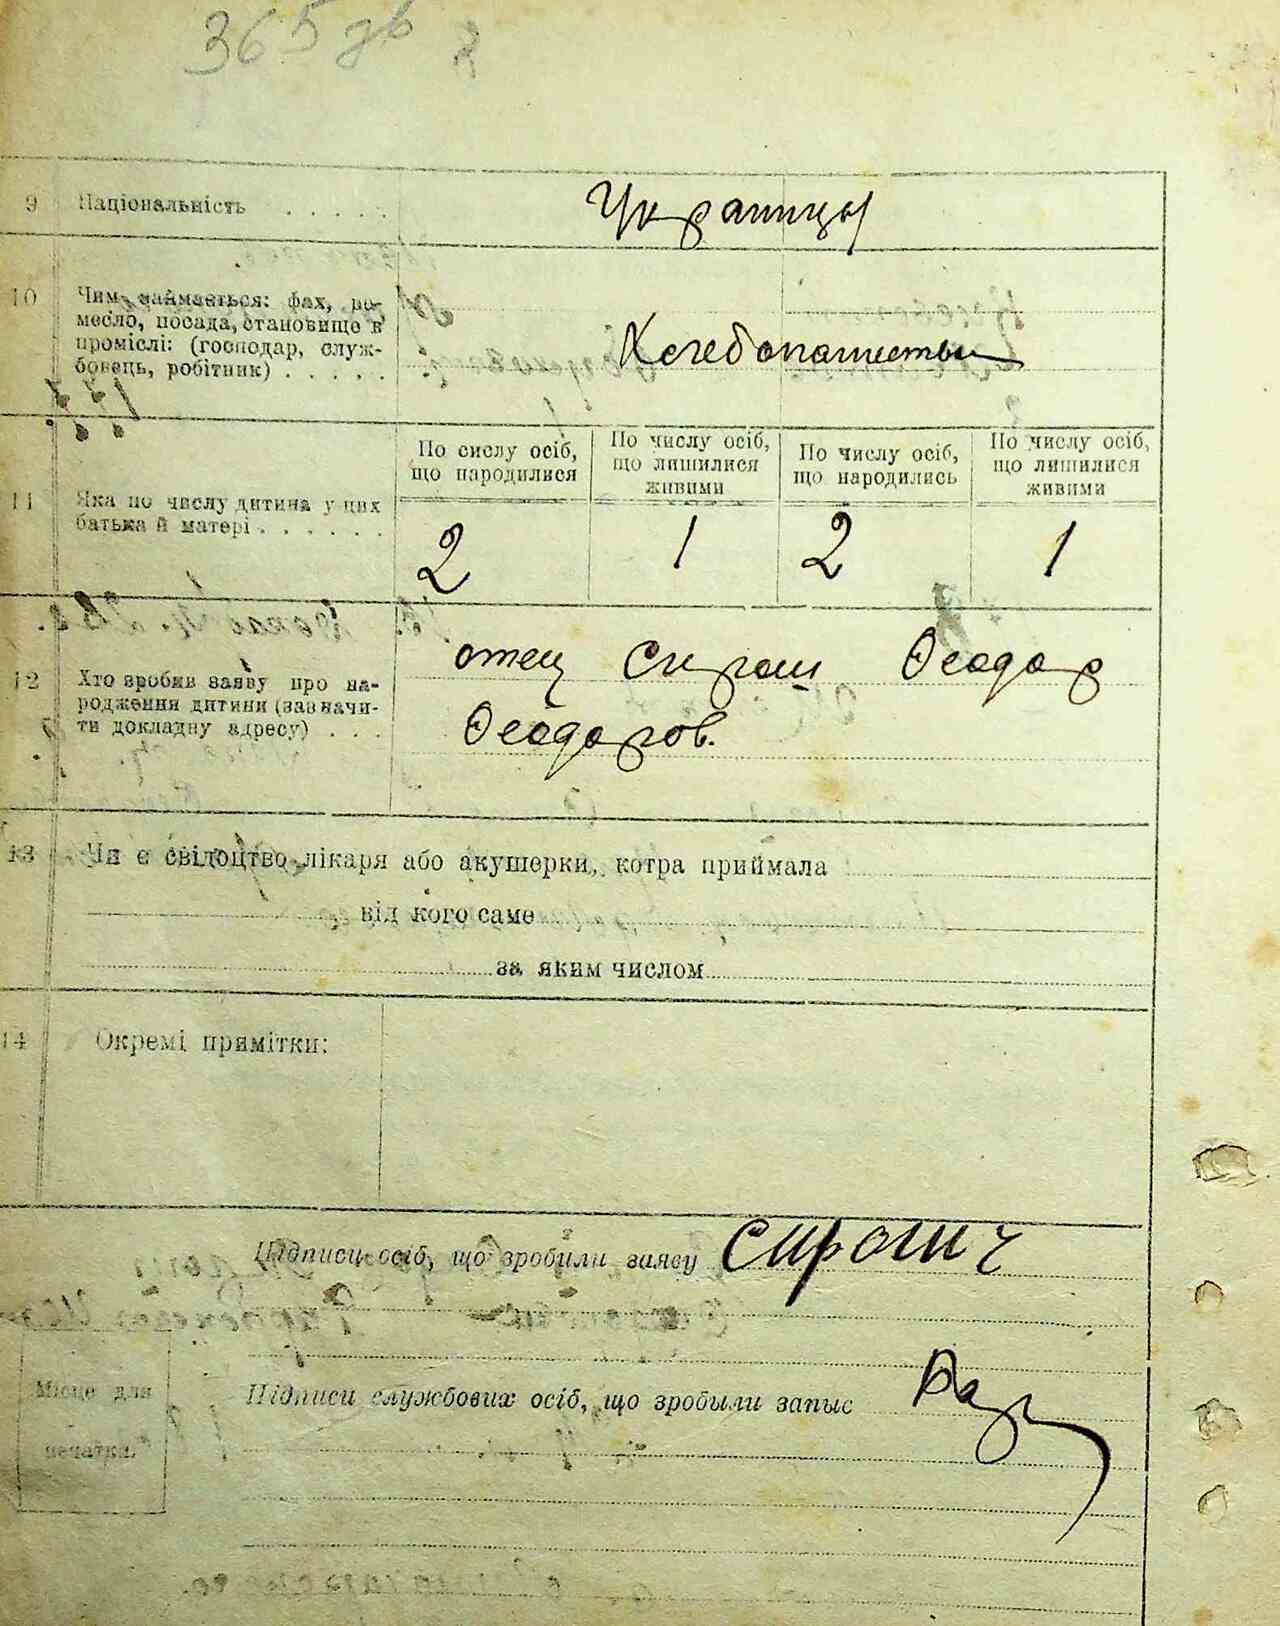 365 зв
9 Національність . . . . . Украинцы
10 Чим займається: фах, ре-
месло, посада, становище в
проміслі: (господар, служ-
бовець, робітник) . . . . . Хлебопашеством
По сислу осіб, що народилися
По числу осіб, що лишилися живими
По числу осіб, що народились
По числу осіб, що лишилися живими
11 Яка по числу дитина у цих
батька й матері . . . . . . 2 1 2 1
12 Хто зробив заяву про на-
родження дитини (зазначи-
ти докладну адресу) . . .
отец Сирош Феодор
Феодоров.
13 Чи є свідоцтво лікаря або акушерки, котра приймала
від кого саме
за яким числом
14 Окремі примітки:
Підписи осіб, що зробили заяву
Місце для
печатки.
Підписи службових осіб, що зробыли запыс